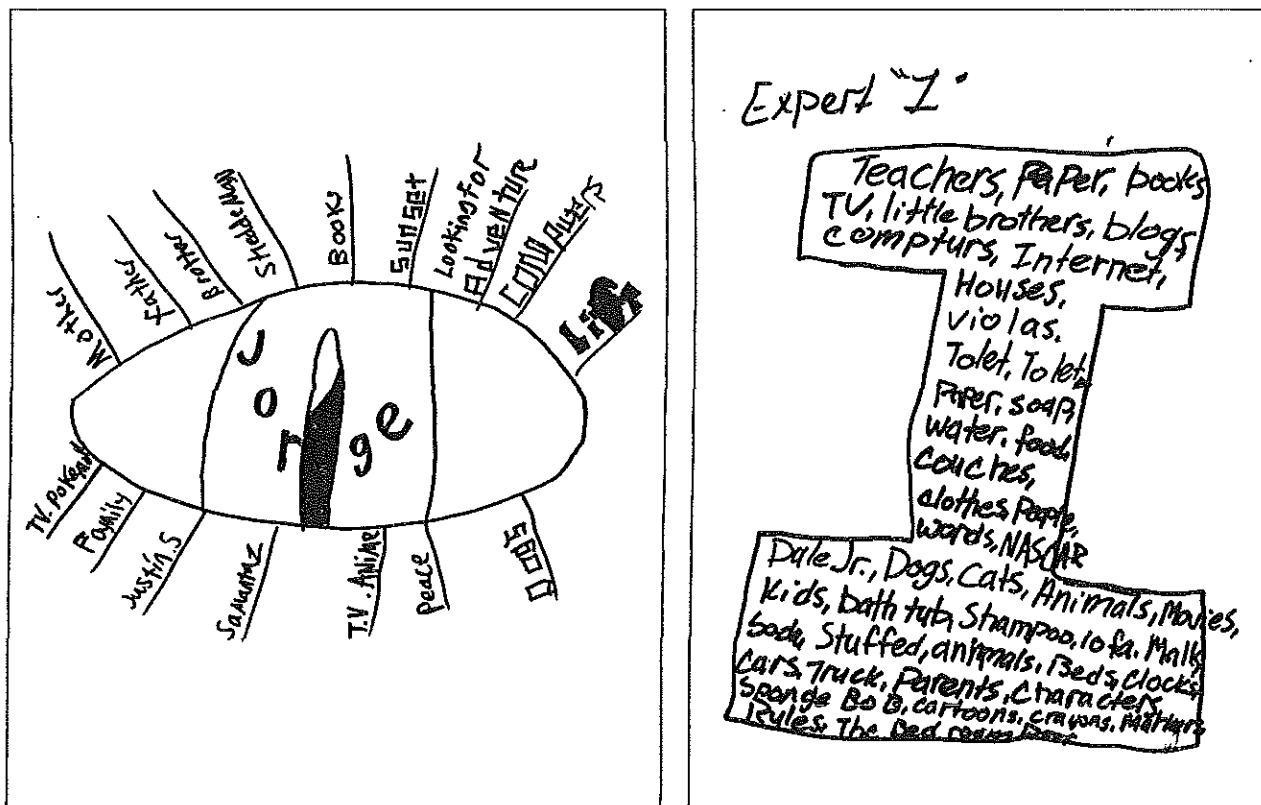 Mother
Father
Brother
Books
Sunset
Looking for
Adventure
Computers
Life
Jorge
TV. Pokemon
Family
Justin.S
T.V. Anime
Peace
Dogs
Expert "I"
Teachers, Paper, books
TV, little brothers, blogs,
compturs, Internet,
Houses,
violas.
Tolet, Tolet
Paper, soap,
water, food,
couches,
clothes, People,
words, NASCAR
Dale.Jr., Dogs, Cats, Animals, Movies,
Kids, bath tub, Shampoo,
Stuffed, animals, Beds, clocks,
cars, Truck, Parents, characters,
Sponge BoB, cartoons, crayons, Markers
Rules, The Bed room